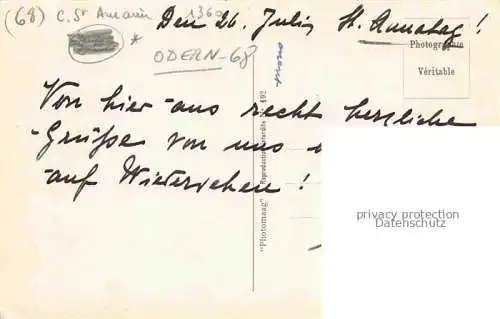 (68) C. St Amarin 1360
Den 26. Juli, St. Annatag!
ODERN-68
mono
Photographie
Véritable
Von hier aus recht herzliche
Grüße von uns
auf Wiedersehen!
"Photomaag" Reproductions
192
privacy protection
Datenschutz